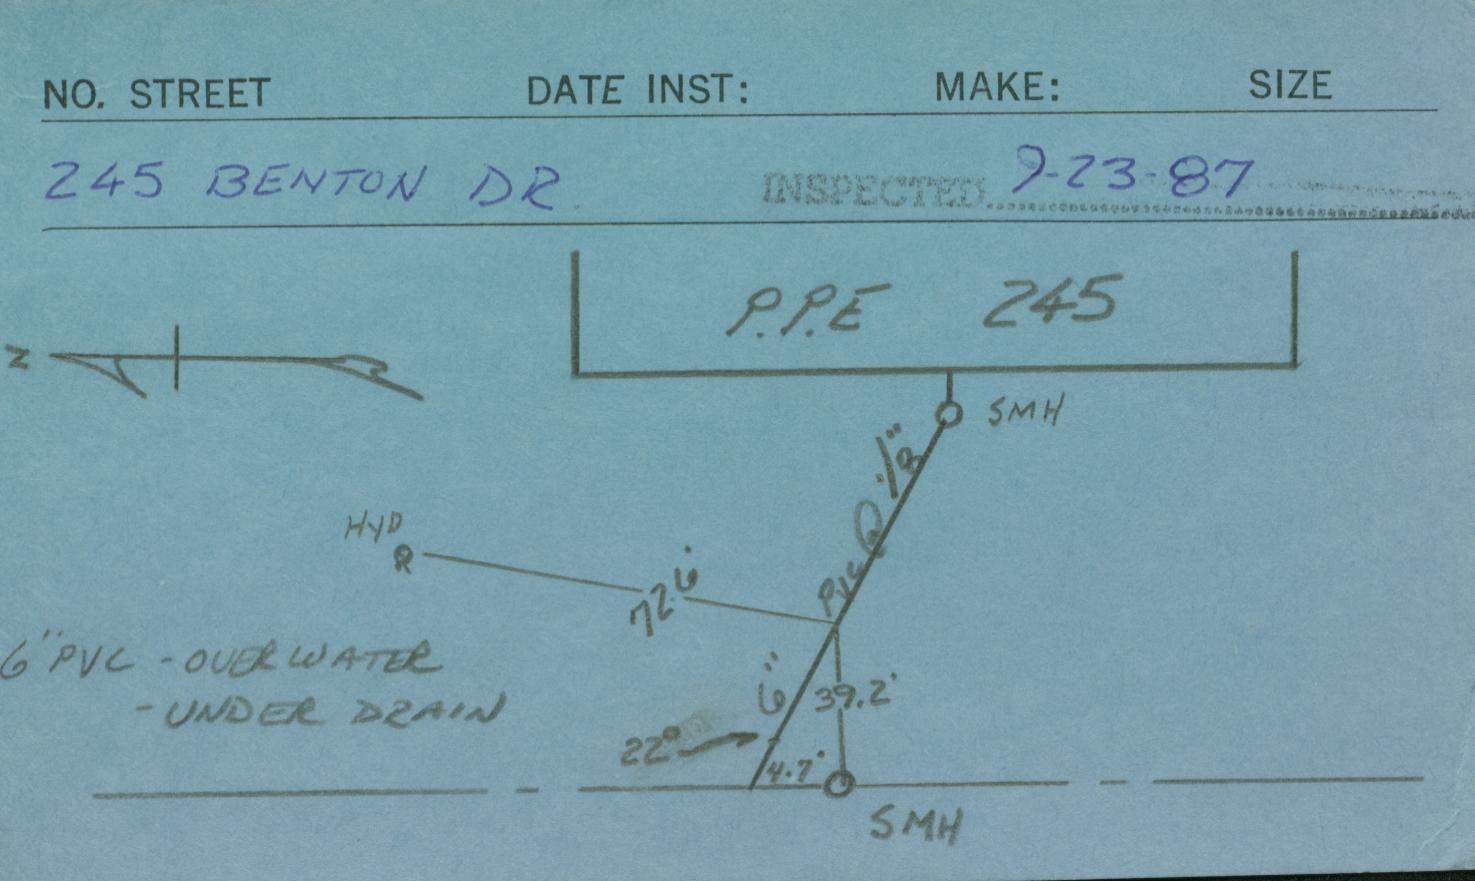 NO. STREET DATE INST: MAKE: SIZE
245 BENTON DR. INSPECTED 9-23-87
P.P.E 245
N
SMH
PVC @ 1/8"
HYD
72.6'
6" PVC - OVER WATER
- UNDER DRAIN
6"
39.2'
22°
4.7'
SMH